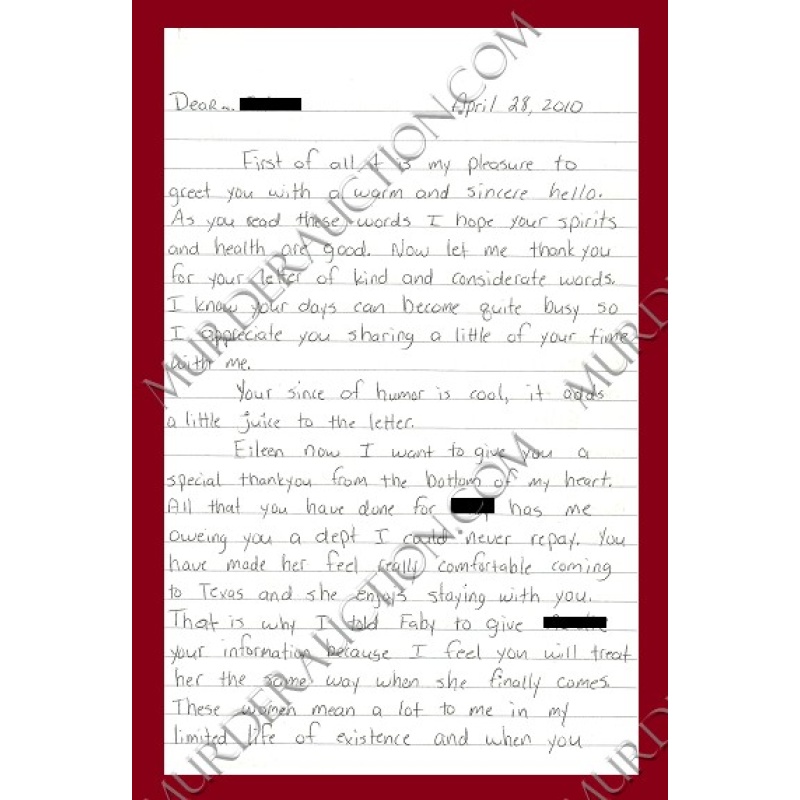 Dear April 28, 2010
First of all it is my pleasure to
greet you with a warm and sincere hello.
As you read these words I hope your spirits
and health are good. Now let me thank you
for your letter of kind and considerate words.
I know your days can become quite busy so
I appreciate you sharing a little of your time
with me.
Your since of humor is cool, it adds
a little juice to the letter.
Eileen now I want to give you a
special thankyou from the bottom of my heart.
All that you have done for has me
oweing you a dept I could never repay. You
have made her feel really comfortable coming
to Texas and she enjoys staying with you.
That is why I told Faby to give
your information because I feel you will treat
her the same way when she finally comes.
These women mean a lot to me in my
limited life of existence and when you
MURDERAUCTION.COM
MURDERAUCTION.COM